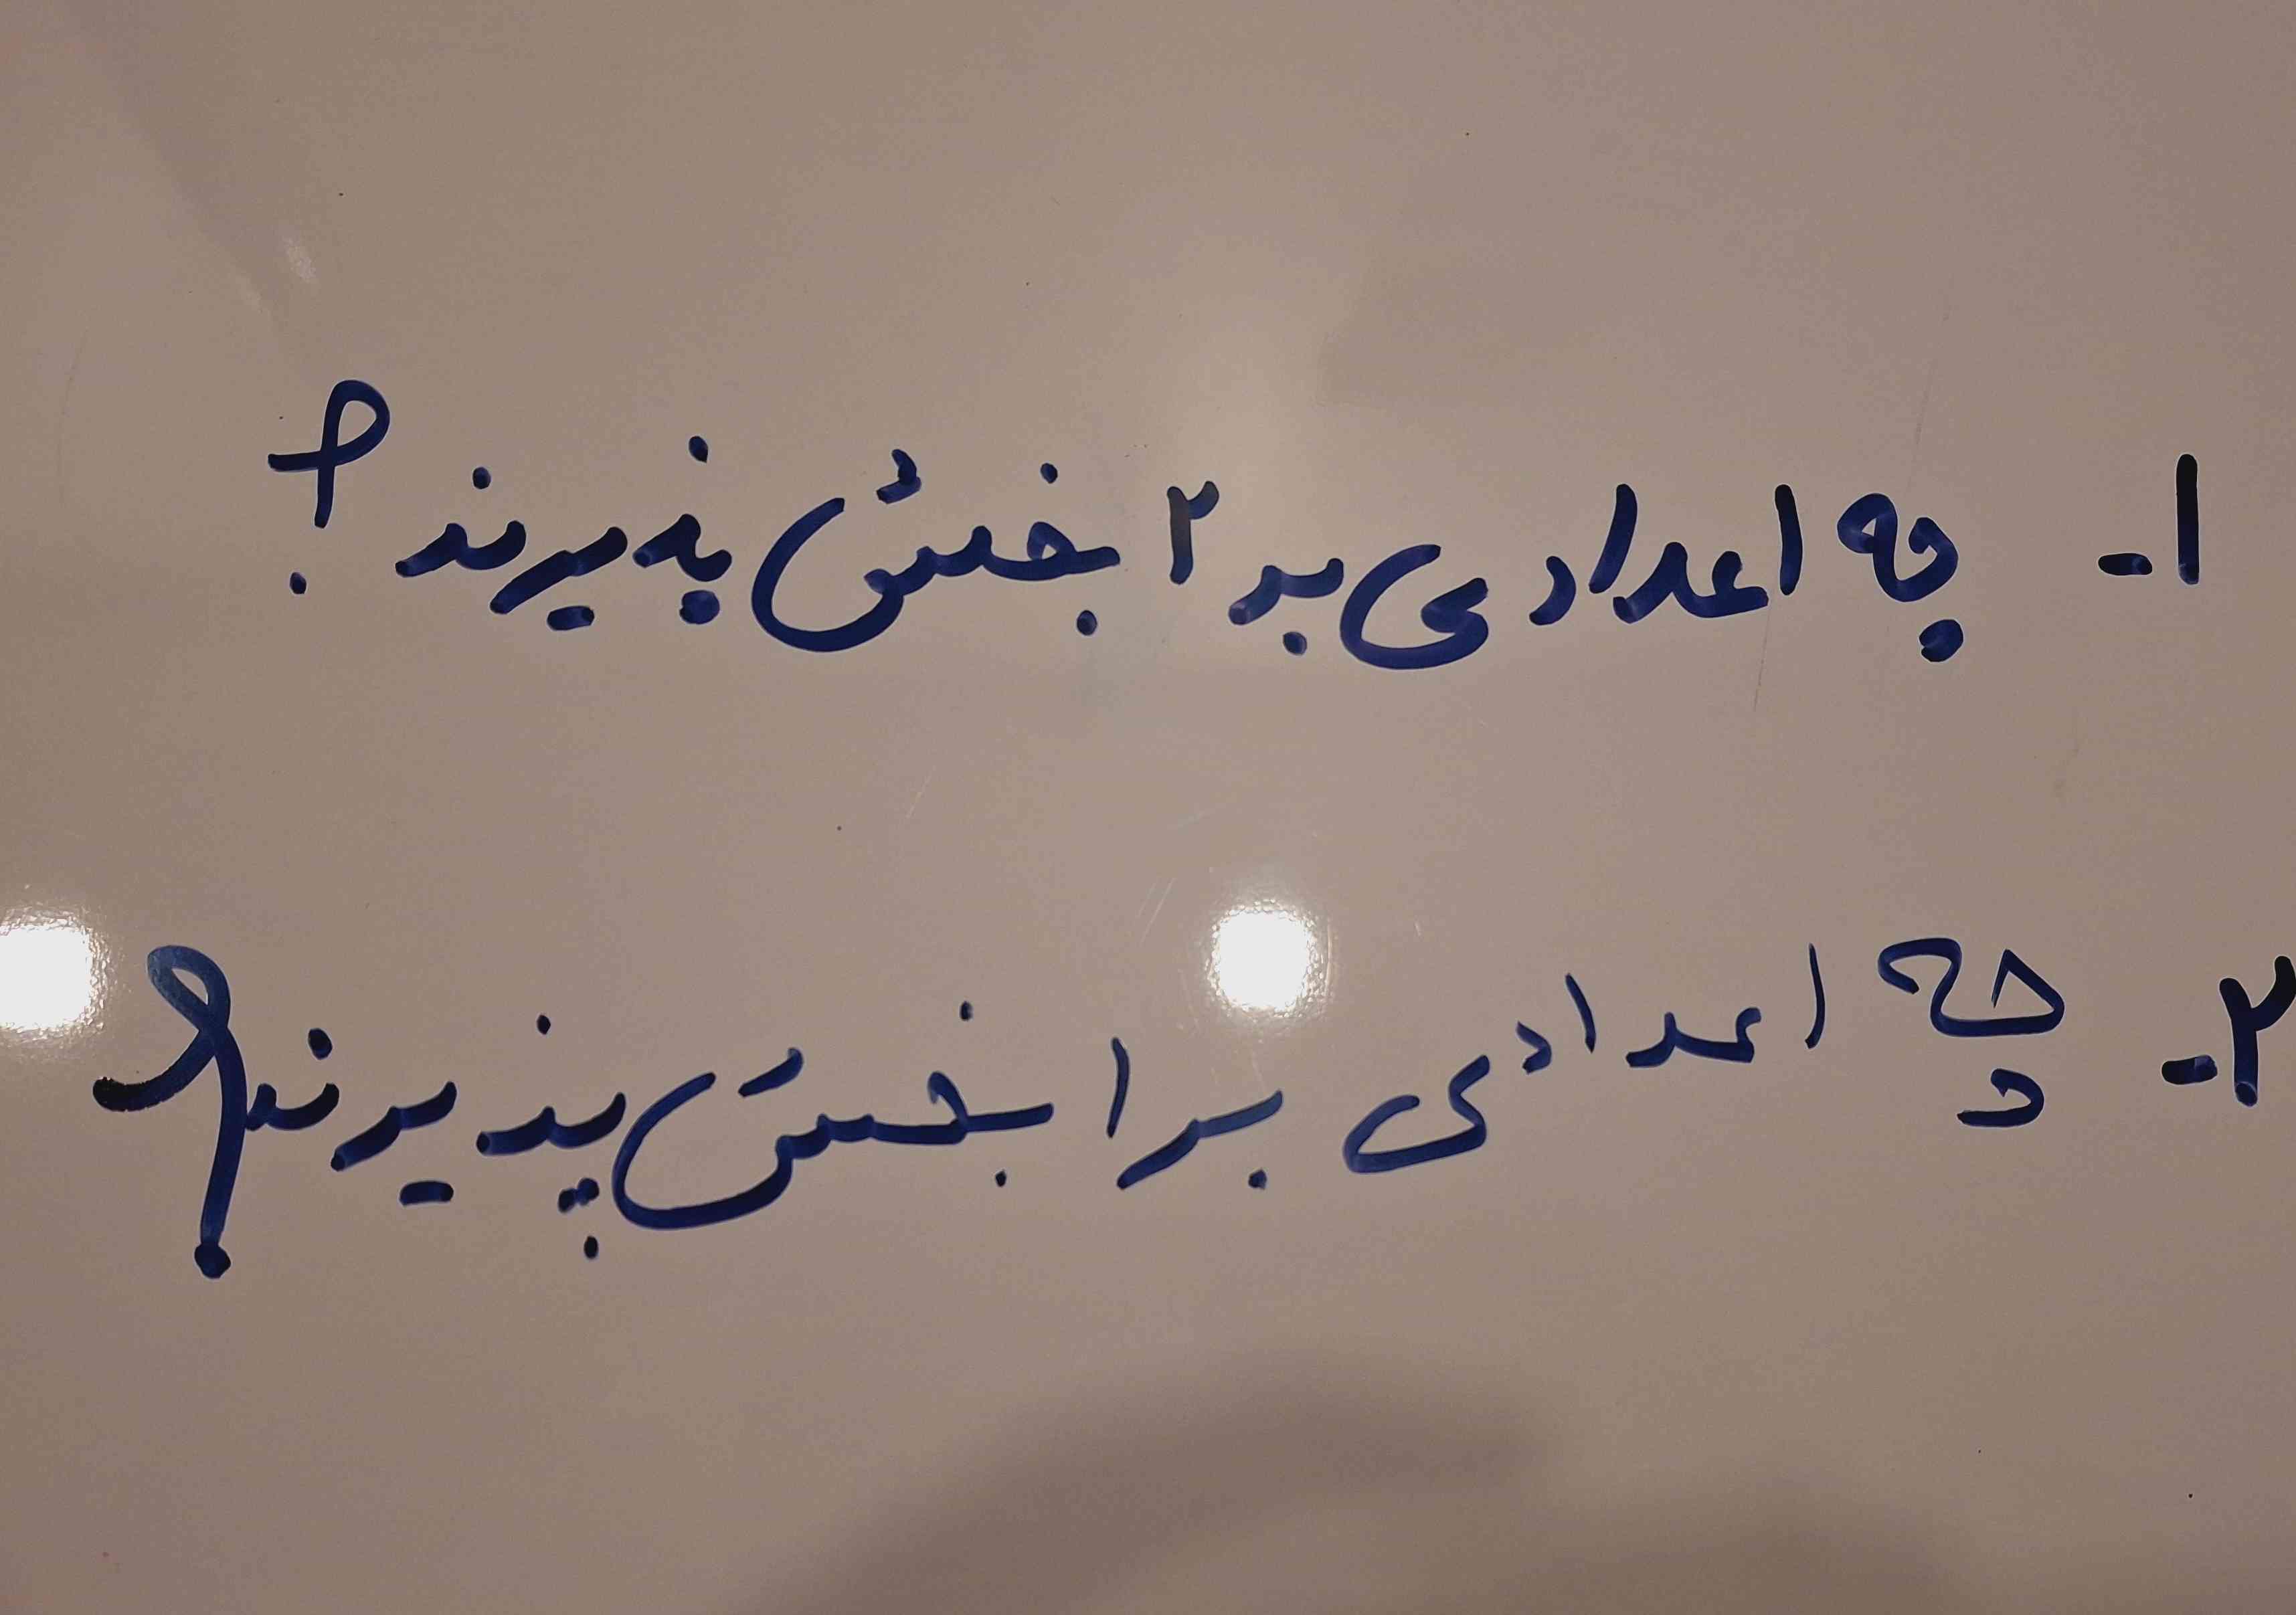 ۱- چه اعدادی بر ۲ بخش پذیرند ؟
۲- چه اعدادی بر ۱ بخش پذیرند؟